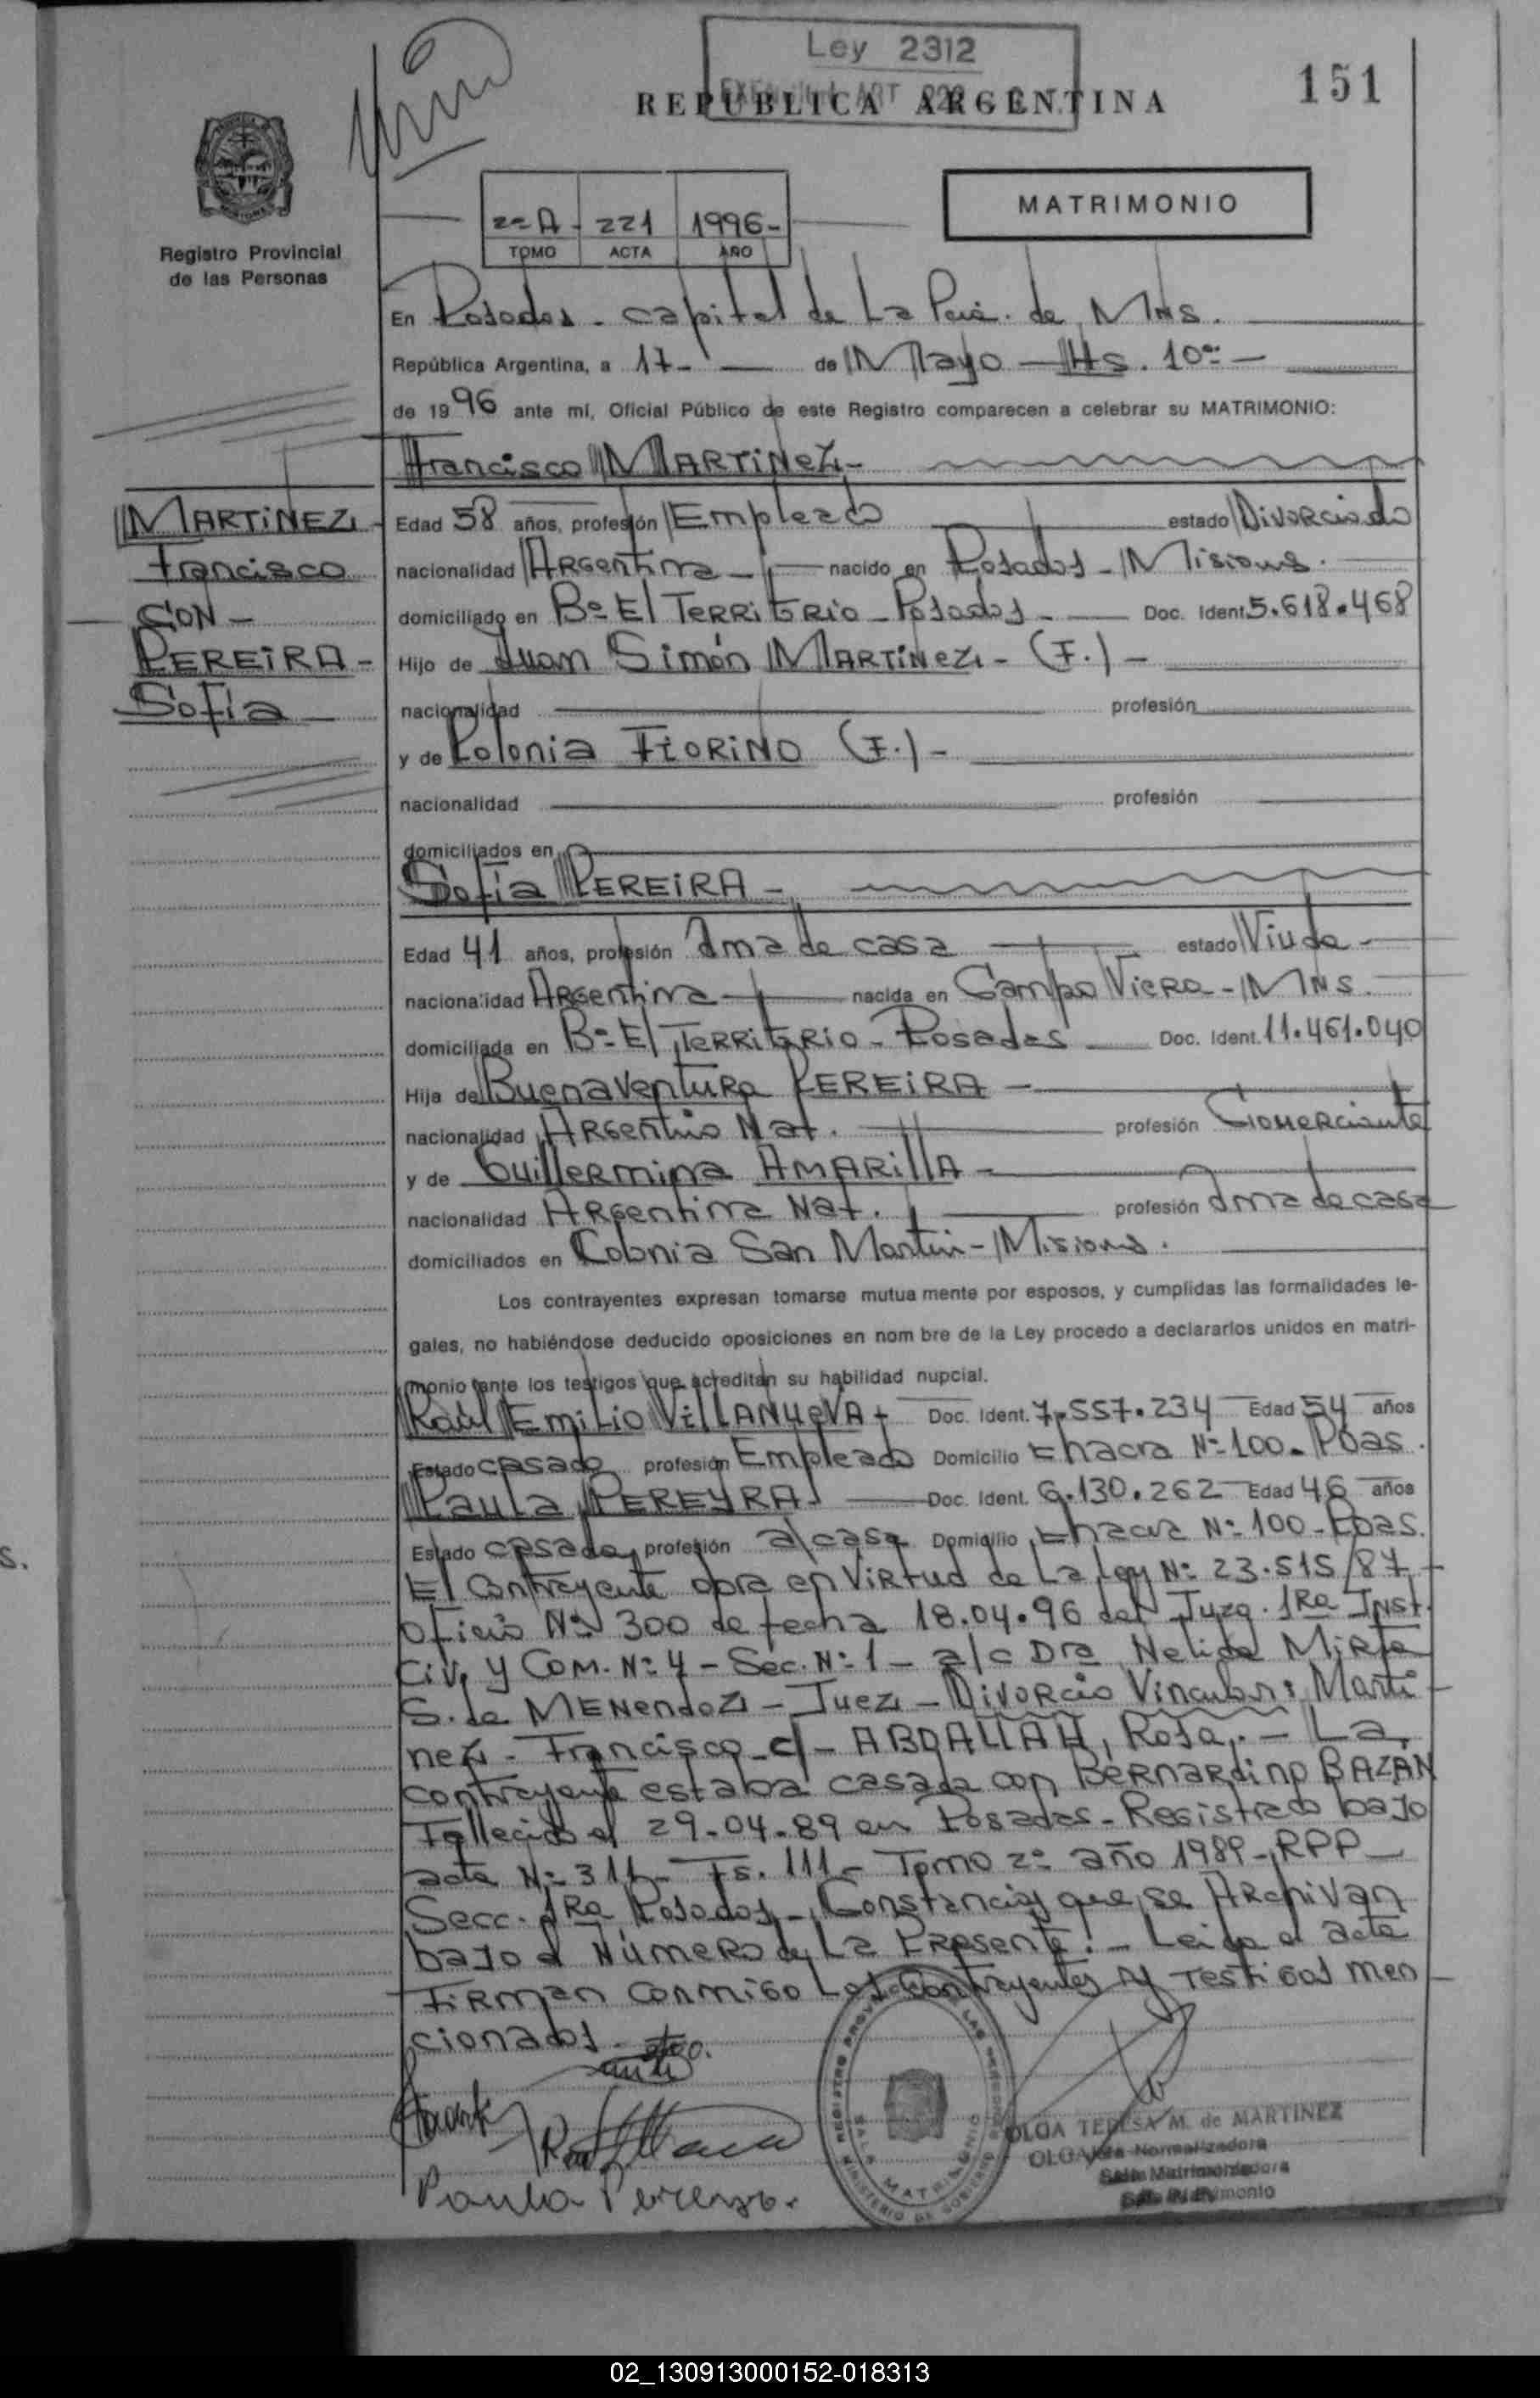 Ley 2312
REPUBLICA ARGENTINA
151
Registro Provincial
de las Personas
2º A - 221 1996-
TOMO ACTA AÑO
MATRIMONIO
En Posadas - capital de La Pcia. de Mns.
República Argentina, a 17- de Mayo - Hs. 10ºº -
de 1996 ante mí, Oficial Público de este Registro comparecen a celebrar su MATRIMONIO:
Francisco MARTINEZ-
MARTINEZ -
Francisco
CON -
PEREIRA -
Sofía
Edad 58 años, profesión Empleado estado Divorciado
nacionalidad Argentina - nacido en Posadas - Misiones.
domiciliado en Bº El Territorio - Posadas - Doc. Ident. 5.618.468
Hijo de Juan Simón MARTINEZ - (F.) -
nacionalidad profesión
y de Polonia FLORINO (F.) -
nacionalidad profesión
domiciliados en
Sofía PEREIRA -
Edad 41 años, profesión Ama de casa estado Viuda -
nacionalidad Argentina - nacida en Campo Viera - MNS.
domiciliada en Bº El Territorio - Posadas Doc. Ident. 11.461.040
Hija de Buenaventura PEREIRA -
nacionalidad Argentino Nat. profesión Comerciante
y de Guillermina AMARILLA -
nacionalidad Argentina Nat. profesión Ama de casa
domiciliados en Colonia San Martín - Misiones.
Los contrayentes expresan tomarse mutua mente por esposos, y cumplidas las formalidades le-
gales, no habiéndose deducido oposiciones en nom bre de la Ley procedo a declararlos unidos en matri-
monio ante los testigos que acreditan su habilidad nupcial.
Raúl Emilio VILLANUEVA - Doc. Ident. 7.557.234 Edad 54 años
Estado casado profesión Empleado Domicilio Chacra Nº 100 - Pdas.
Paula PEREYRA - Doc. Ident. 6.130.262 Edad 46 años
Estado casada profesión a/casa Domicilio Chacra Nº 100 - Pdas.
El contrayente obra en virtud de La Ley Nº 23.515/87 -
Oficio Nº 300 de fecha 18.04.96 del Juzg. 1Ra Inst.
Civ. y Com. Nº 4 - Sec. Nº 1 - a/c Dra Nelida Mirta
S. de MENendoZ - Juez - Divorcio Vincular: Marti -
nez - Francisco c/ - ABDALLAH, Rosa. - La
contrayente estaba casada con Bernardino BAZÁN
Fallecido el 29-04-89 en Posadas - Registrado bajo
acta Nº 311 - Fs. 111 - Tomo 2º año 1989 - RPP -
Secc. 1Ra Posadas - Constancias que se Archivan
bajo el Número de La Presente! - Leída el acta
Firman conmigo Los Contrayentes y Testigos men -
cionados -
Paula Pereyra.
REGISTRO PROVINCIAL DE LAS PERSONAS
SALA MATRIMONIO
MINISTERIO DE GOBIERNO
OLGA TERESA M. de MARTINEZ
02_130913000152-018313